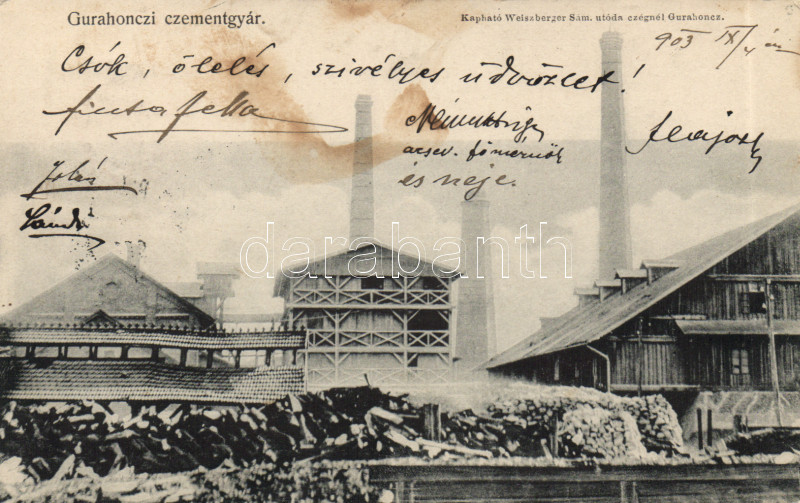 Gurahonczi czementgyár.
Kapható Weiszberger Sam. utóda czégnél Gurahoncz.
903 IX/4 én
Csók, ölelés, szivélyes üdvözlet!
Pinta Jella
acsev. főmérnök
és neje.
darabanth